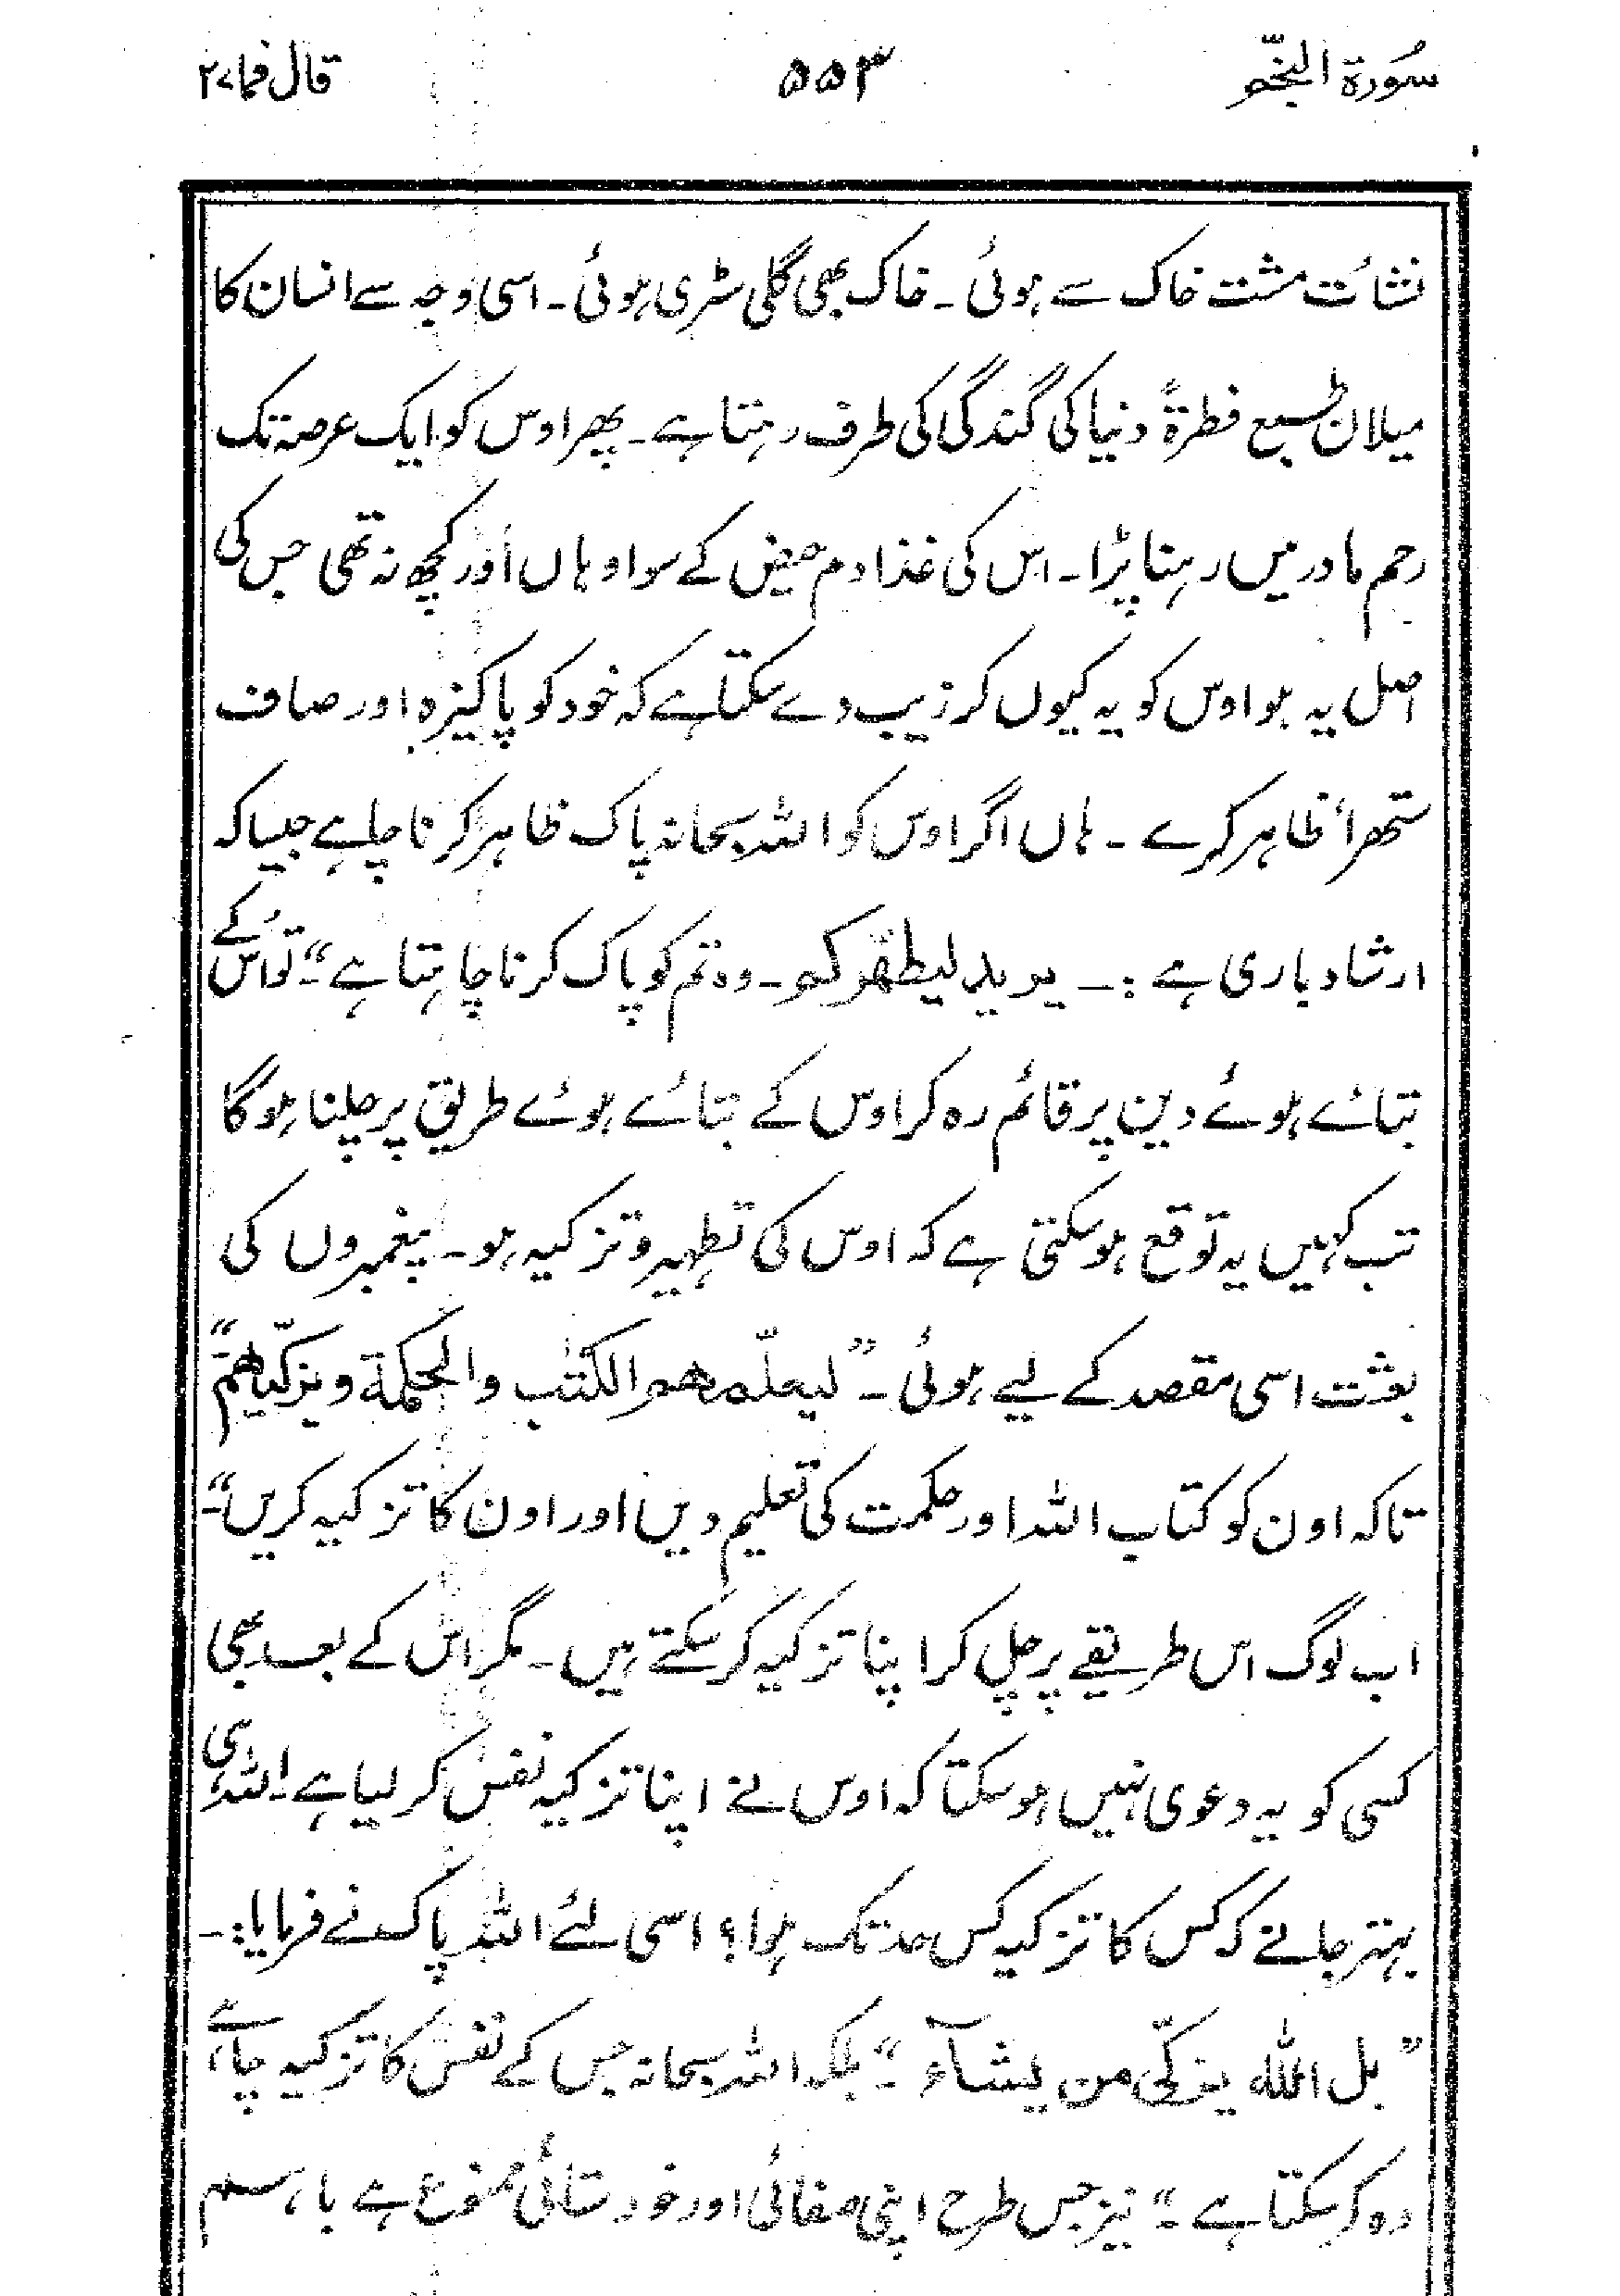 سُورة النجّم ۵۵۳ قال فما ۲۷
نشأت مشت خاک سے ہوئی ۔ خاک بھی گلی سڑی ہوئی ۔ اسی وجہ سے انسان کا
میلان طبع فطرۃً دنیا کی گندگی کی طرف رہتا ہے ۔ پھر اوس کو ایک عرصہ تک
رحم مادر میں رہنا پڑا ۔ اس کی غذا دم حیض کے سوا وہاں اور کچھ نہ تھی جس کی
اصل یہ ہو اوس کو یہ کیوں کر زیب دے سکتا ہے کہ خود کو پاکیزہ اور صاف
ستھرا ظاہر کرے ۔ ہاں اگر اوس کو اللہ سبحانہ پاک ظاہر کرنا چاہے جیسا کہ
ارشاد باری ہے :۔ یرید لیطھّرکم ۔ وہ تم کو پاک کرنا چاہتا ہے “۔ تو اُس کے
بتائے ہوئے دین پر قائم رہ کر اوس کے بتائے ہوئے طریق پر چلنا ہوگا
تب کہیں یہ توقع ہوسکتی ہے کہ اوس کی تطہیر و تزکیہ ہو ۔ پیغمبروں کی
بعثت اسی مقصد کے لیے ہوئی ۔ ” لیعلّمھم الکتٰب والحکمۃ ویزکّیھم “
تاکہ اون کو کتاب اللہ اور حکمت کی تعلیم دیں اور اون کا تزکیہ کریں “۔
اب لوگ اس طریقے پر چل کر اپنا تزکیہ کرسکتے ہیں ۔ مگر اس کے بعد بھی
کسی کو یہ دعوی نہیں ہوسکتا کہ اوس نے اپنا تزکیہ نفس کر لیا ہے ۔ اللہ ہی
بہتر جانے کہ کس کا تزکیہ کس حد تک ہوا ؟ اسی لئے اللہ پاک نے فرمایا :۔
” بل اللہ یزکّی من یشآء “۔ بلکہ اللہ سبحانہ جس کے نفس کا تزکیہ چاہے
وہ کرسکتا ہے “۔ نیز جس طرح اپنی صفائی اور خود ستائی ممنوع ہے باہم